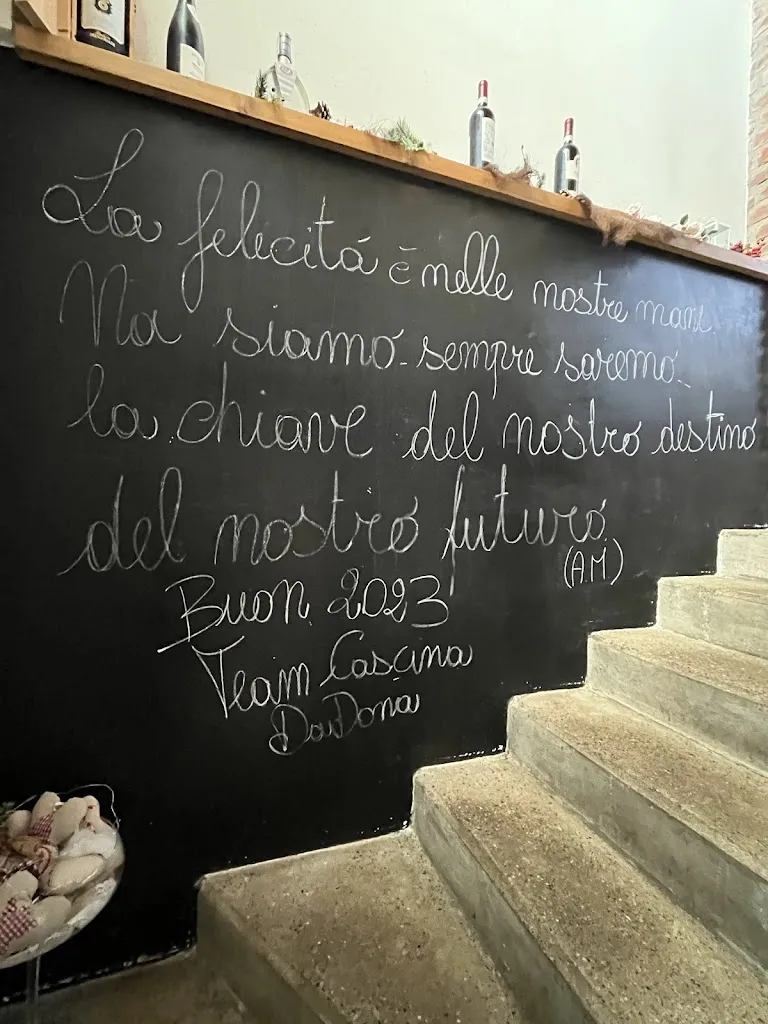 La felicitá è nelle nostre mani.
Noi siamo sempre saremo
la chiave del nostro destino
del nostro futuro
(A.M)
Buon 2023
Team Cascina
DaDona